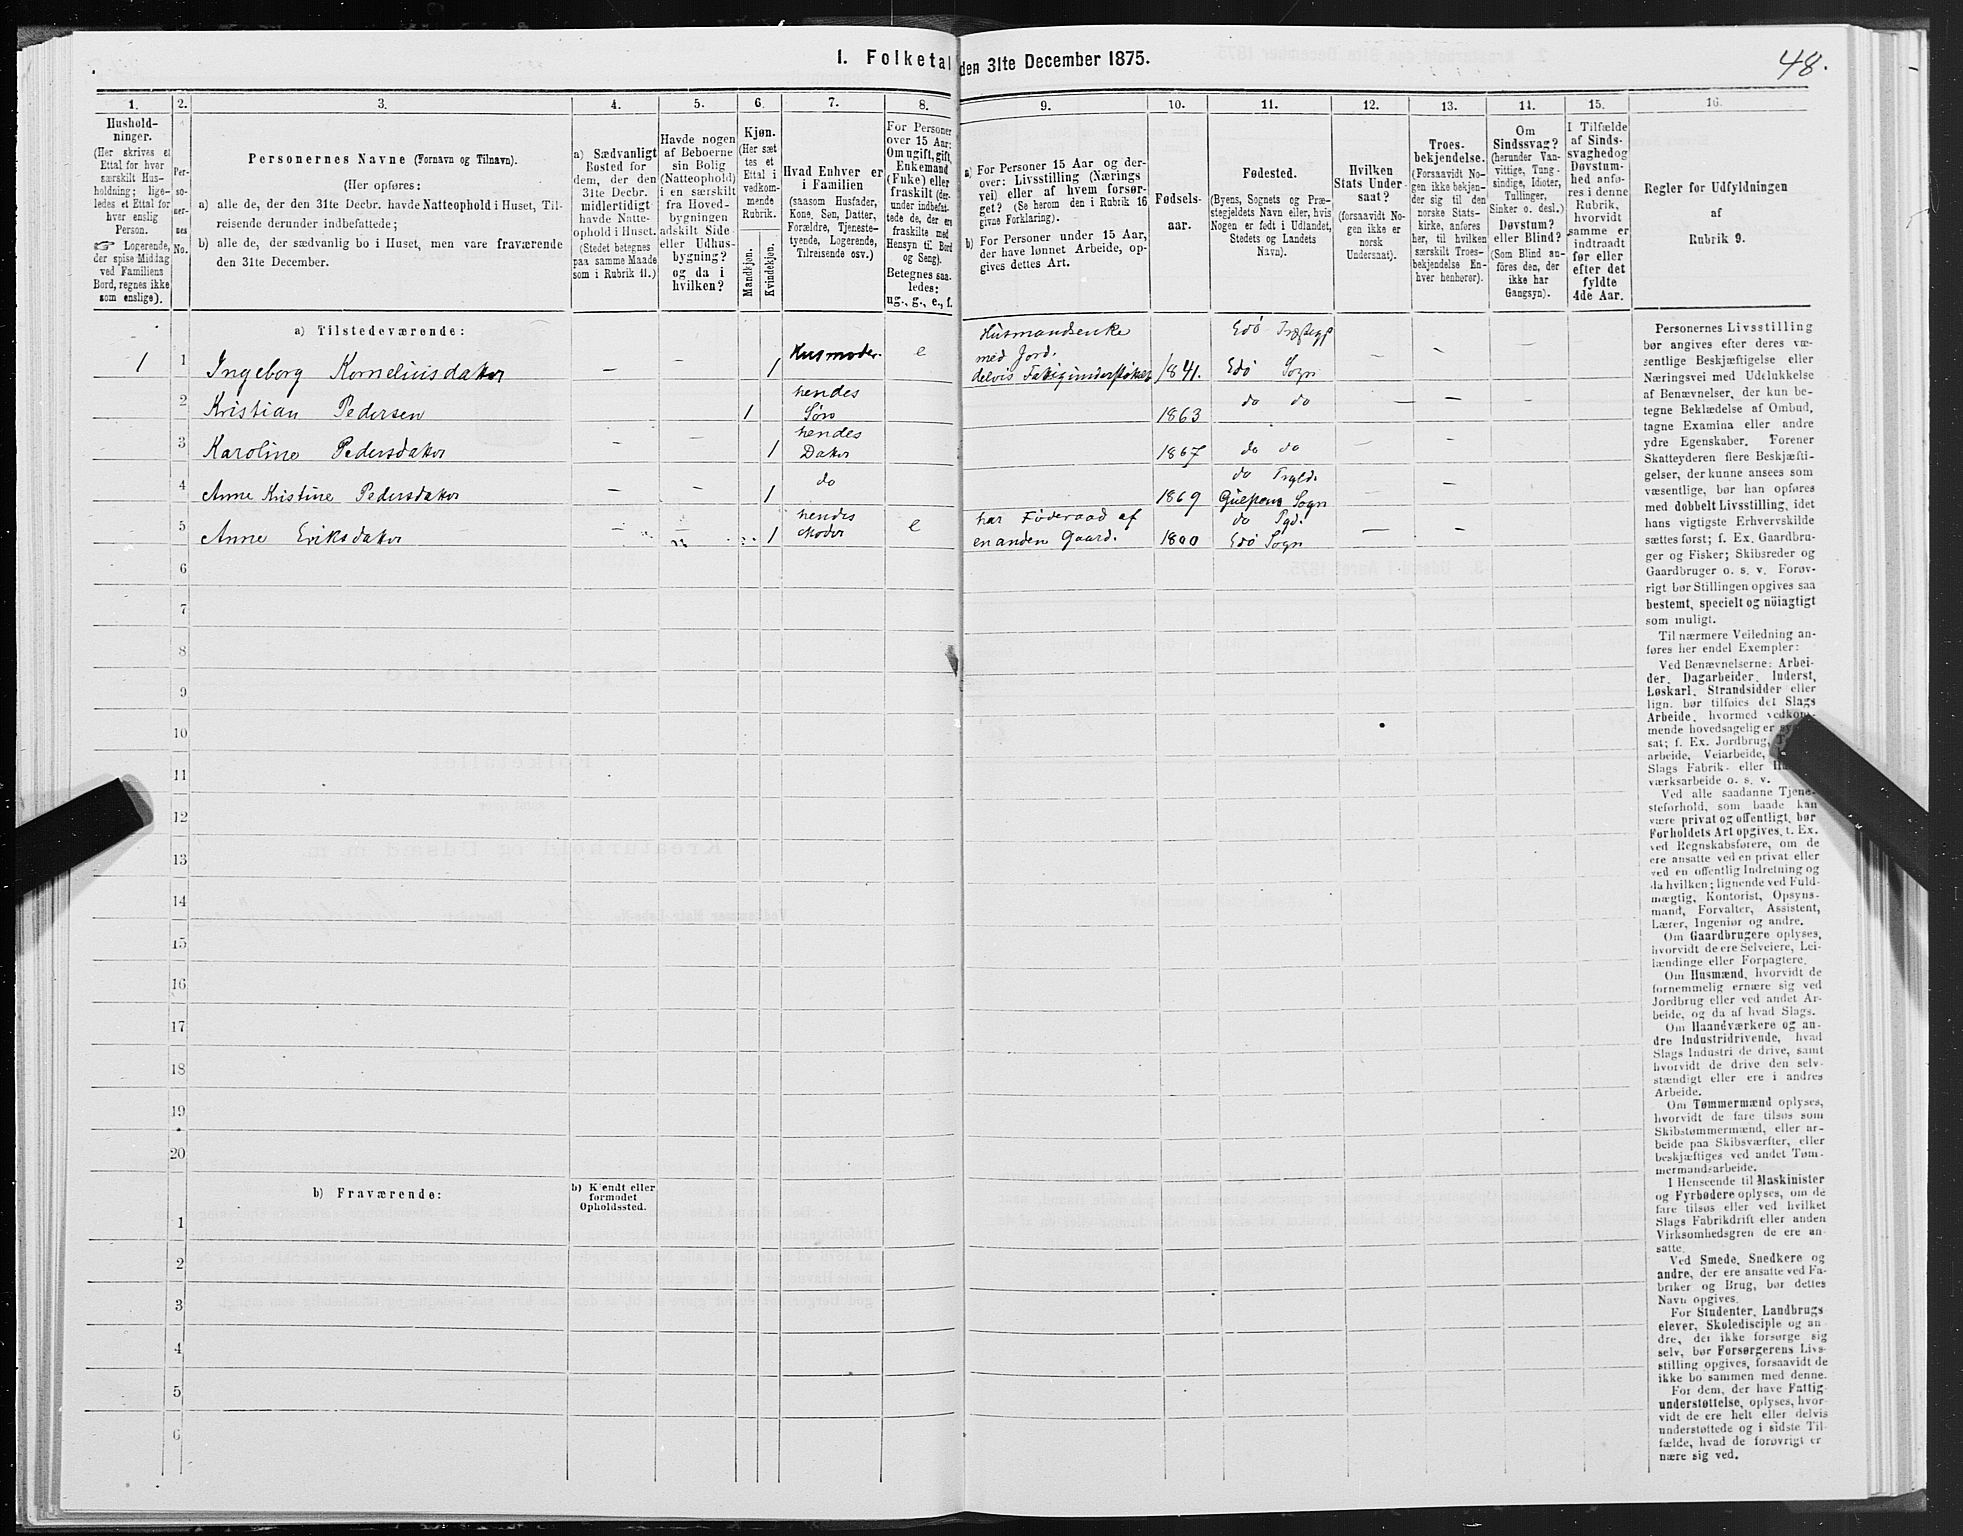 I. Folketal den 31te December 1875.
48.
1.
2.
3.
4.
5.
6.
7.
8.
9.
10.
11.
12.
13.
14.
15.
16.
Hushold-
ninger.
(Her skrives et
Ettal for hver
særskilt Hus-
holdning; lige-
ledes et Ettal for
hver enslig
Person.
☞ Logerende,
der spise Middag
ved Familiens
Bord, regnes ikke
som enslige).
Per-
so-
ner-
nes
No.
Personernes Navne (Fornavn og Tilnavn).
(Her opføres:
a) alle de, der den 31te Decbr. havde Natteophold i Huset, Til-
reisende derunder indbefattede;
b) alle de, der sædvanlig bo i Huset, men vare fraværende
den 31te December.
a) Sædvanligt
Bosted for
dem, der den
31te Decbr.
midlertidigt
havde Natte-
ophold i Huset.
(Stedet betegnes
paa samme Maade
som i Rubrik 11.)
Havde nogen
af Beboerne
sin Bolig
(Natteophold)
i en særskilt
fra Hoved-
bygningen
adskilt Side-
eller Udhus-
bygning?
og da i
hvilken?
Kjøn.
(Her sæt
tes et
Ettal i
vedkom-
mende
Rubrik.
Mandkjøn.
Kvindekjøn.
Hvad Enhver er
i Familien
(saasom Husfader,
Kone, Søn, Datter,
Forældre, Tjeneste-
tyende, Logerende,
Tilreisende osv.)
For Personer
over 15 Aar:
Om ugift, gift,
Enkemand
(Enke) eller
fraskilt (der-
under indbefat-
tede de, der ere
fraskilte med
Hensyn til Bord
og Seng).
Betegnes saa-
ledes:
ug., g., e., f.
a) For Personer 15 Aar og der-
over: Livsstilling (Nærings
vei) eller af hvem forsør-
get? (Se herom den i Rubrik 16
givne Forklaring).
b) For Personer under 15 Aar,
der have lønnet Arbeide, op-
gives dettes Art.
Fødsels-
aar.
Fødested.
(Byens, Sognets og Præ-
stegjeldets Navn eller, hvis
Nogen er født i Udlandet,
Stedets og Landets
Navn).
Hvilken
Stats Under-
saat?
(forsaavidt No-
gen ikke er
norsk
Undersaat).
Troes-
bekjendelse.
(Forsaavidt No-
gen ikke bekjen-
der sig til den
norske Stats-
kirke, anføres
her, til hvilken
særskilt Troes-
bekjendelse En-
hver henhører).
Om
Sindssvag?
(herunder Van-
vittige, Tung-
sindige, Idioter,
Tullinger,
Sinker o. desl.)
Døvstum?
eller Blind?
(Som Blind an-
føres den, der
ikke har
Gangsyn).
I Tilfælde
af Sinds-
svaghed og
Døvstum-
hed anfø-
res i denne
Rubrik,
hvorvidt
samme er
indtraadt
før eller
efter det
fyldte
4de Aar.
Regler for Udfyldningen
af
Rubrik 9.
a) Tilstedeværende:
1 1 Ingeborg Korneliusdater — — 1 Husmoder. e Husmandsenke
med Jord.
delvis Fatigunderstøttet 1841. Edö Sogn — — —
2 Kristian Pedersen 1 hendes
Søn 1863 do do — — —
3 Karoline Pedersdater — — 1 hendes
Dater 1867 do do — —
4 Anne Kristine Pedersdater — — 1 do 1869 do
Sogn —
5 Anne Eriksdater — — 1 hendes
Moder e har Föderaad af
en anden Gaard. 1800 do Pgd.
Edö Sogn — —
6
7
8
9
10
11
12
13
14
15
16
17
18
19
20
b) Fraværende:
b) Kjendt eller
formodet
Opholdssted.
1
2
3
4
5
6
Personernes Livsstilling
bør angives efter deres væ-
sentlige Beskjæftigelse eller
Næringsvei med Udelukkelse
af Benævnelser, der kun be-
tegne Beklædelse af Ombud,
tagne Examina eller andre
ydre Egenskaber. Forener
Skatteyderen flere Beskjæfti-
gelser, der kunne ansees som
væsentlige, bør han opføres
med dobbelt Livsstilling, idet
hans vigtigste Erhvervskilde
sættes først; f. Ex. Gaardbru-
ger og Fisker; Skibsreder og
Gaardbruger o. s. v. Forøv-
rigt bør Stillingen opgives saa
bestemt, specielt og nöiagtigt
som muligt.
Til nærmere Veiledning an-
føres her endel Exempler:
Ved Benævnelserne: Arbei-
der, Dagarbeider, Inderst,
Løskarl, Strandsidder eller
lign. bør tilføies det Slags
Arbeide, hvormed vedkom-
mende hovedsagelig er
sat; f. Ex. Jordbrug,
arbeide, Veiarbeide,
Slags Fabrik- eller
værksarbeide o. s. v.
Ved alle saadanne Tjene-
steforhold, som baade kan
være privat og offentligt, bør
Forholdets Art opgives, t. Ex.
ved Regnskabsførere, om de
ere ansatte ved en privat eller
ved en offentlig Indretning og
da hvilken; lignende ved Fuld-
mægtig, Kontorist, Opsyns-
mand, Forvalter, Assistent,
Lærer, Ingeniør og andre.
Om Gaardbrugere oplyses,
hvorvidt de ere Selveiere, Lei-
lændinge eller Forpagtere.
Om Husmænd, hvorvidt de
fornemmelig ernære sig ved
Jordbrug eller ved andet Ar-
beide, og da af hvad Slags.
Om Haandværkere og an-
dre Industridrivende, hvad
Slags Industri de drive, samt
hvorvidt de drive den selv-
stændigt eller ere i andres
Arbeide.
Om Tømmermænd oplyses,
hvorvidt de fare tilsøs som
Skibstømmermænd, eller ar-
beide paa Skibsværfter, eller
beskjæftiges ved andet Tøm-
mermandsarbeide.
I Henseende til Maskinister
og Fyrbødere oplyses, om de
fare tilsøs eller ved hvilket
Slags Fabrikdrift eller anden
Virksomhedsgren de ere an-
satte.
Ved Smede, Snedkere og
andre, der ere ansatte ved Fa-
briker og Brug, bør dettes
Navn opgives.
For Studenter, Landbrugs
elever, Skoledisciple og an-
dre, der ikke forsørge sig
selv, bør Forsørgerens Livs-
stilling opgives, forsaavidt de
ikke bo sammen med denne.
For dem, der have Fattig-
understøttelse, oplyses, hvor-
vidt de ere helt eller delvis
understøttede og i sidste Til-
fælde, hvad de forøvrigt er
nære sig ved.